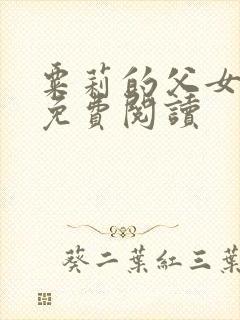 粟莉的父女
免費閱讀
葵二葉紅三葉